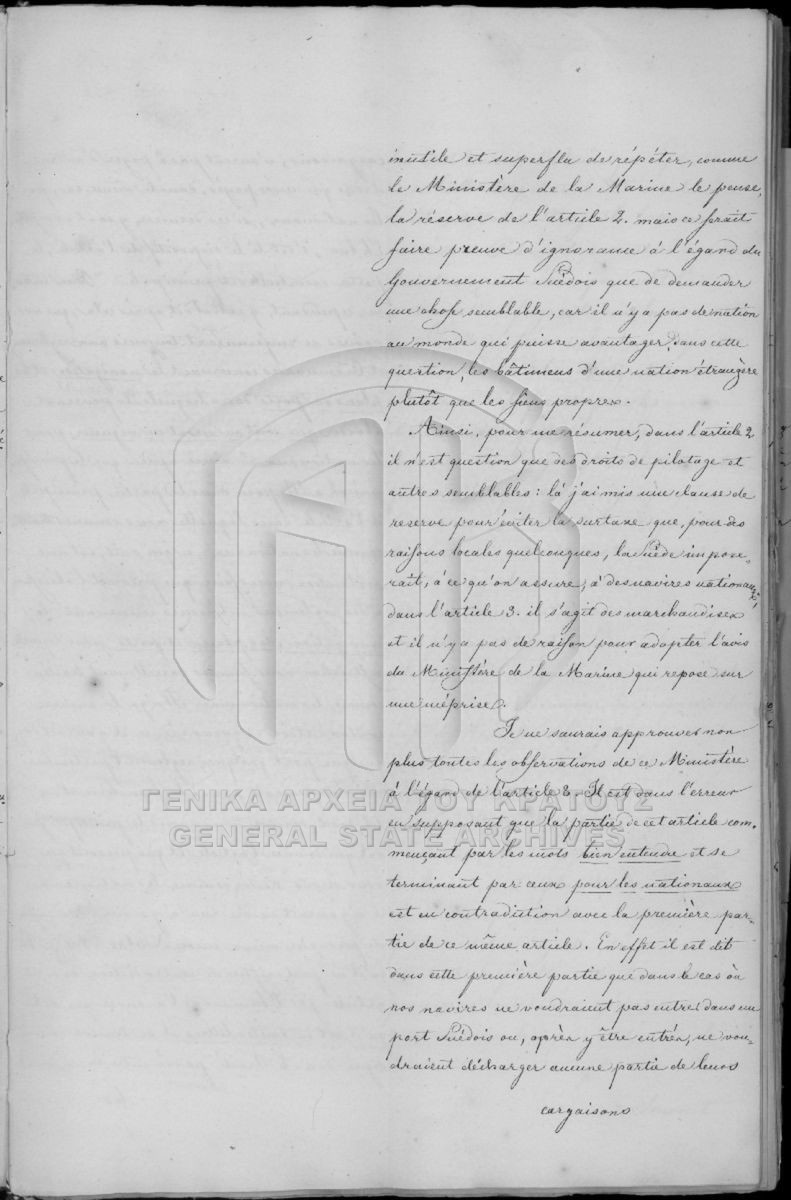 inutile et superflu de répéter, comme
le Ministère de la Marine le pense,
la réserve de l'article 2. mais ce serait
faire preuve d'ignorance à l'égard du
Gouvernement Suédois que de demander
une chose semblable, car il n'y a pas de nation
au monde qui puisse avantager, dans cette
question, les bâtimens d'une nation étrangère
plutôt que les siens propres.
Ainsi, pour me résumer, dans l'article 2
il n'est question que des droits de pilotage et
autres semblables: là j'ai mis une clause de
reserve pour éviter la surtaxe que, pour des
raisons locales quelconques, la Suède impose-
rait, à ce qu'on assure, à des navires nationaux;
dans l'article 3. il s'agit des marchandises
et il n'y a pas de raison pour adopter l'avis
du Ministère de la Marine qui repose sur
une méprise.
Je ne saurais approuver non
plus toutes les observations de ce Ministère
à l'égard de l'article 8. Il est dans l'erreur
ΓΕΝΙΚΑ ΑΡΧΕΙΑ ΤΟΥ ΚΡΑΤΟΥΣ
en supposant que la partie de cet article com-
GENERAL STATE ARCHIVES
mençant par les mots bien entendre et se
terminant par ceux pour les nationaux
est en contradiction avec la première par-
tie de ce même article. En effet il est dit
dans cette première partie que dans le cas où
nos navires ne voudraient pas entrer dans un
port Suédois ou, après y être entrés, ne vou-
draient décharger aucune partie de leurs
cargaisons